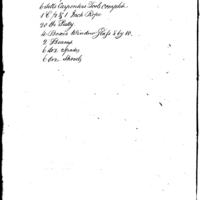 6 Setts Carpenders Tools complete
1 C, ½ & 1 Inch Rope
20 lbs Putty
4 Boxes Window Glass 8 by 10.
2 
6 doz Spades
6 doz Shovels